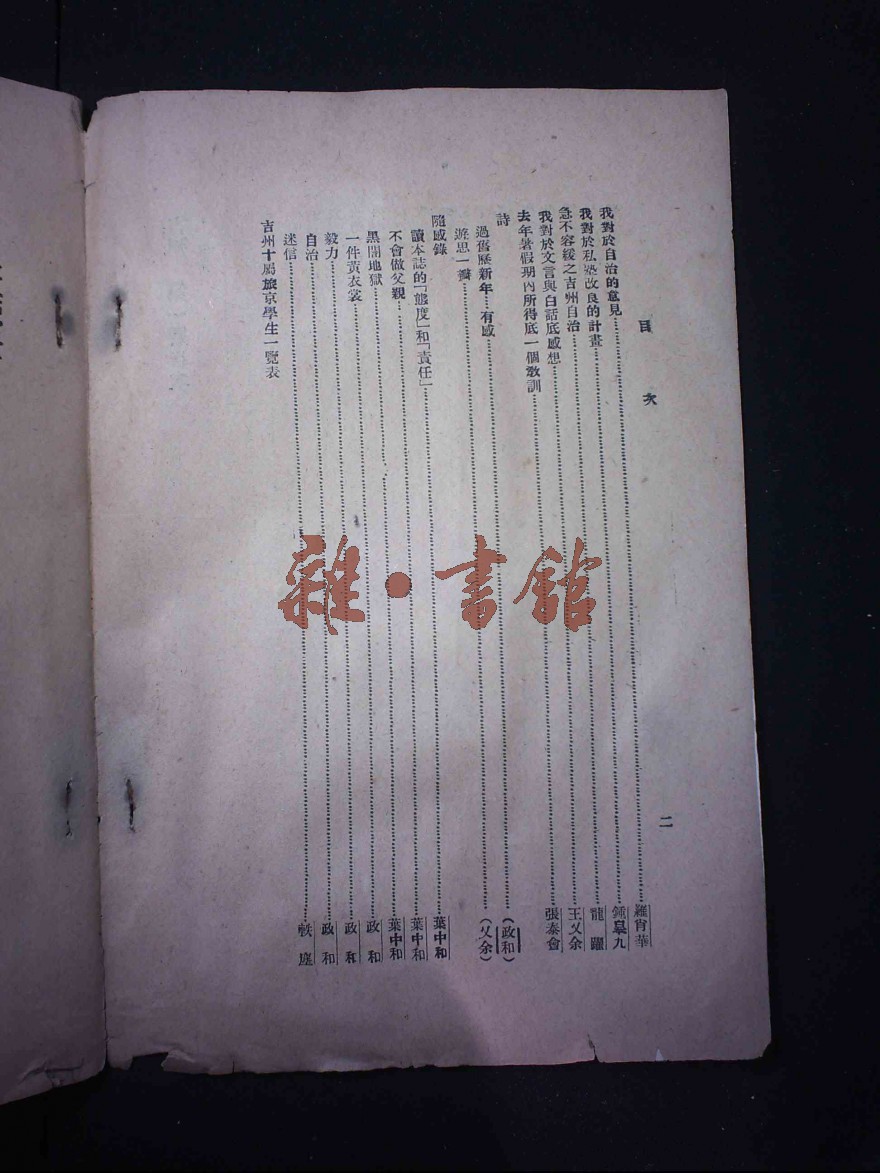 目次 二
我對於自治的意見……羅宵華
我對於私塾改良的計畫……鍾皐九
急不容緩之吉州自治……龍躍
我對於文言與白話底感想……王乂余
去年暑假期內所得底一個教訓……張泰會
詩
過舊歷新年……有感……(政和)
遊思一瓣……(乂余)
隨感錄
讀本誌的「態度」和「責任」……葉中和
不會做父親……葉中和
黑闇地獄……葉中和
一件黃衣裳……政和
毅力……政和
自治……政和
迷信……軼塵
吉州十屬旅京學生一覽表
雜·書館